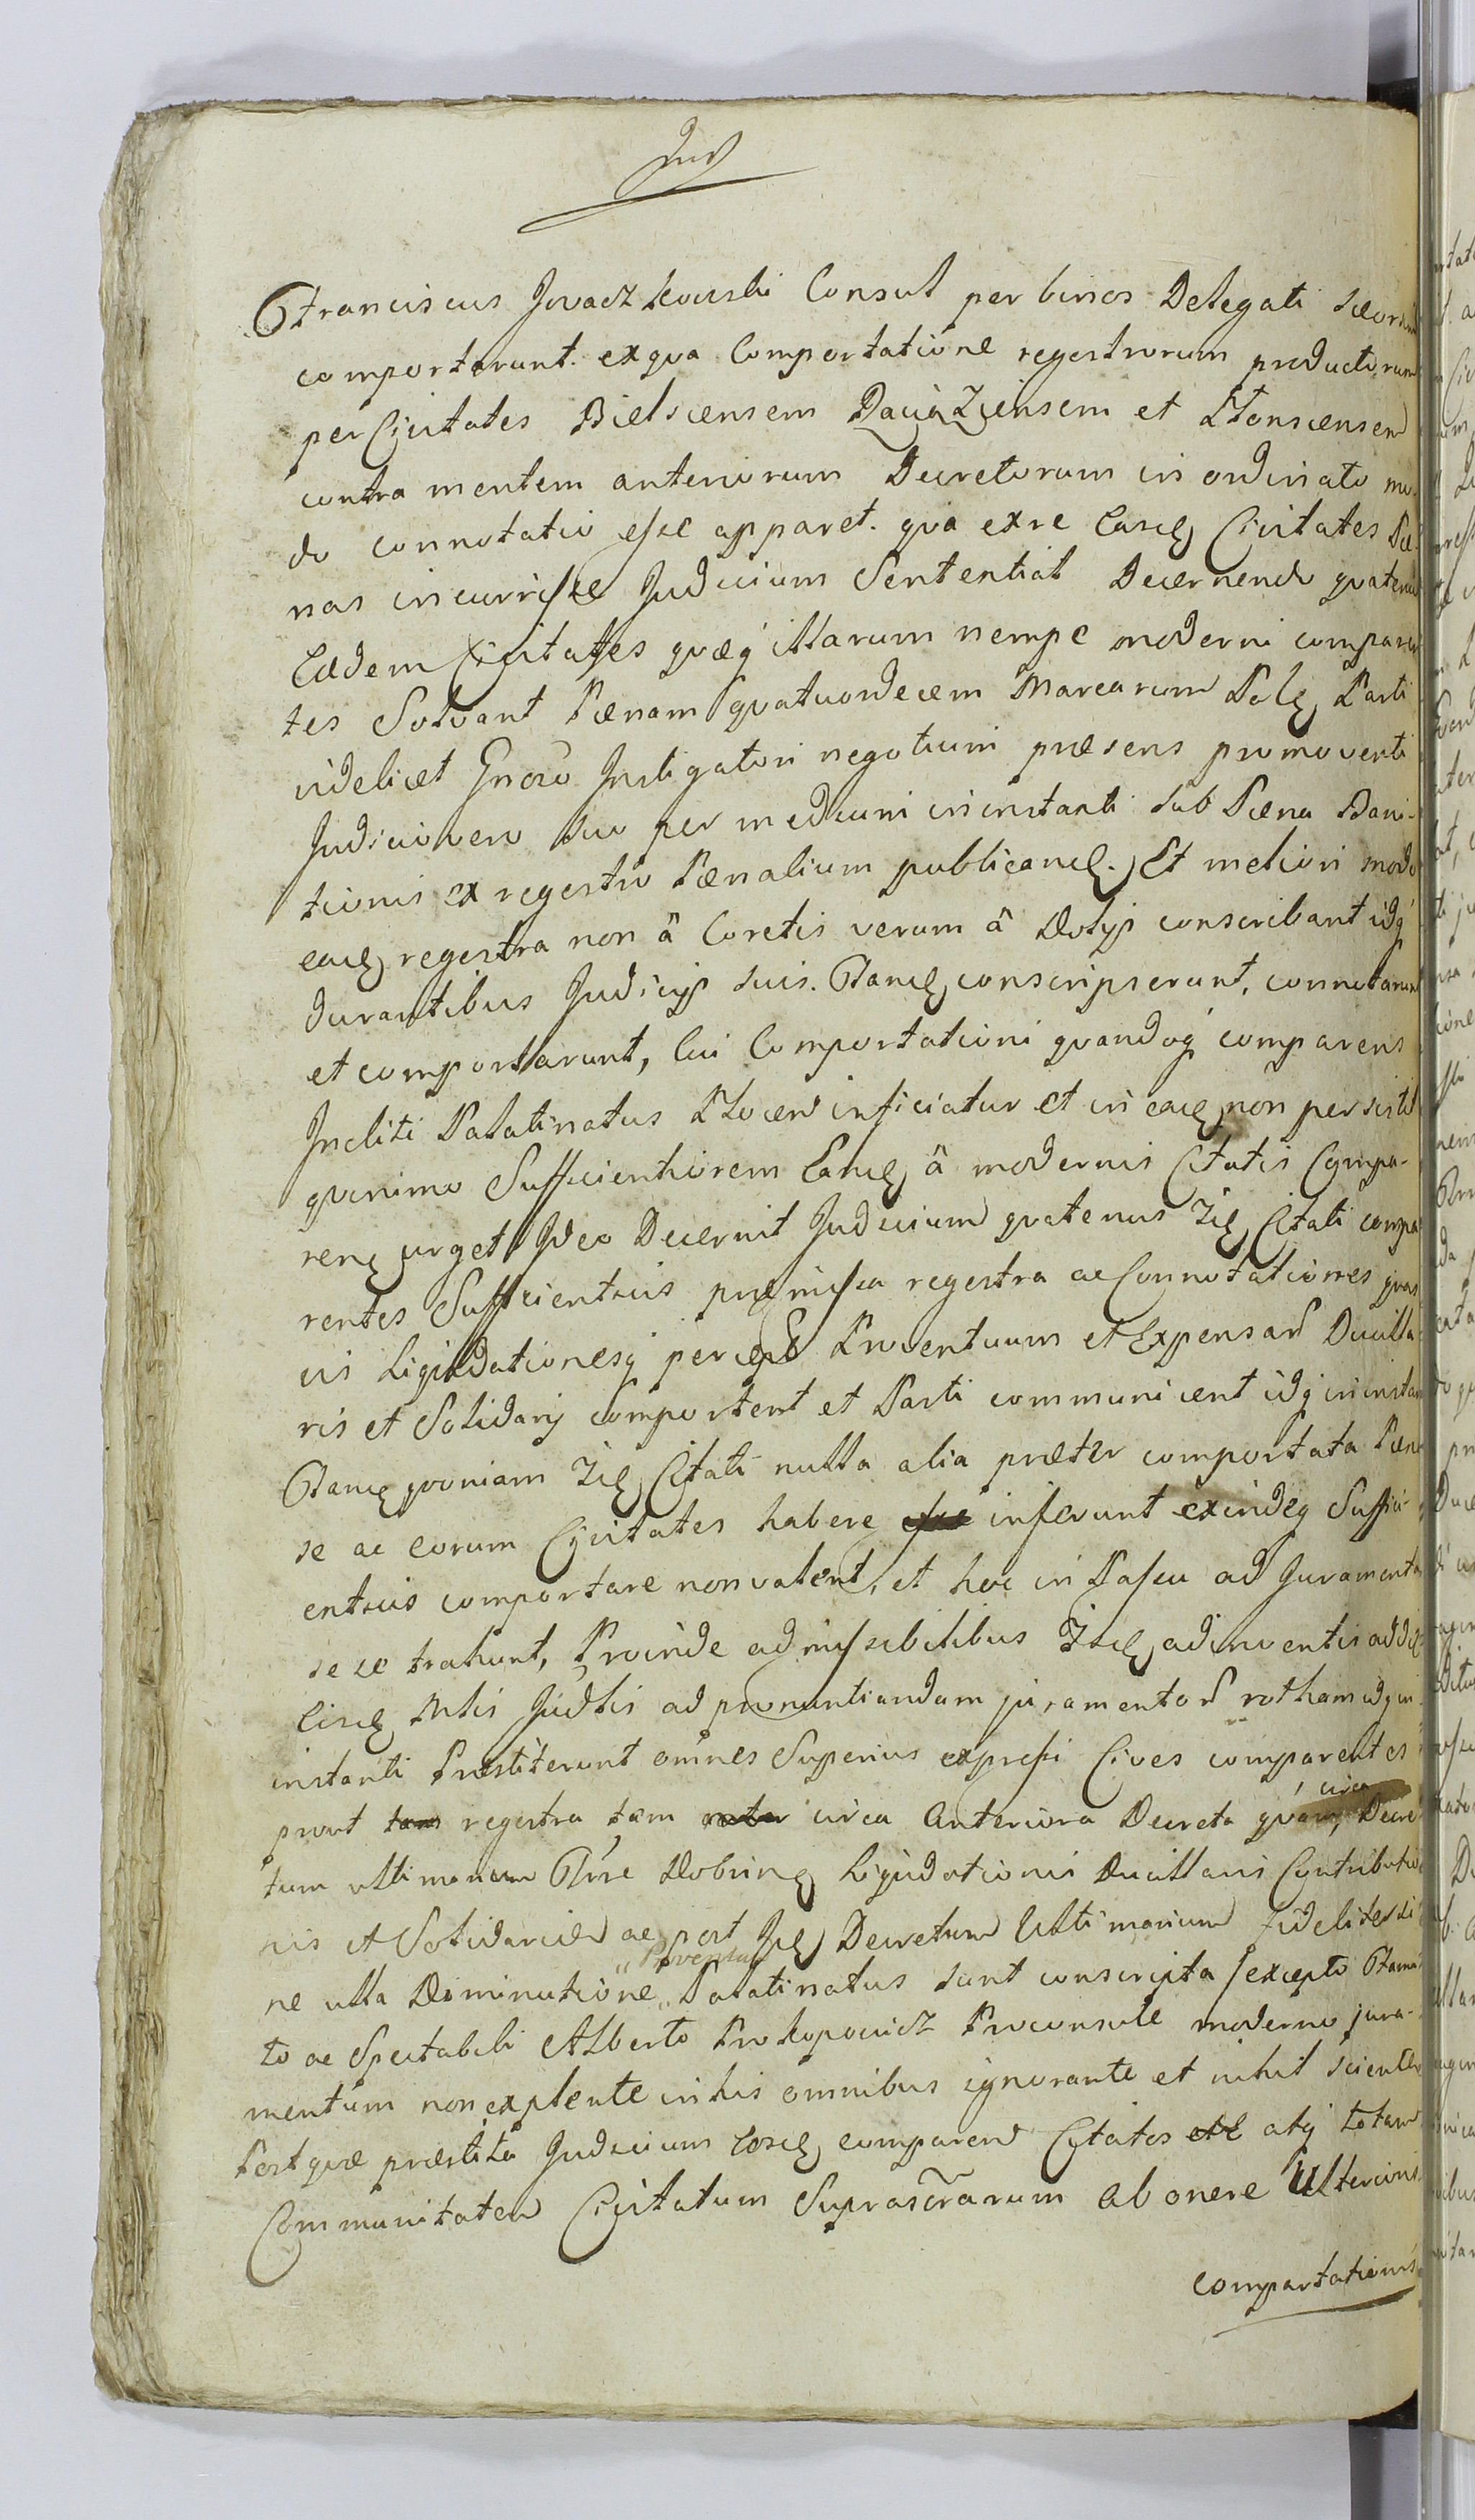 Franciscus Jovaczkowski Consul per binos Delegati suorum
comportarunt. ex qva Comportatione regestrorum productorum
per Civitates Bielscensem Raciąziensem et Płonscensem
contra mentem anteriorum Decretorum in ordinato mo-
do connotatio esse apparet. qva ex re Easq Civitates Pæ-
nas incurrisse Judicium Sententiat Decernendo qvatenus
Eædem Civitates qvæq illarum nempe moderni comparen
tes Solvant Pænam qvatuordecem Marcarum Polq Parti
videlicet Gnoso Instigatori negotium præsens promoventi
Judicio vero suo per medium in instanti sub Pæna Bani-
tionis ex regestro Pænalium publicanq. Et meliori modo
eaq regestra non â Coretis verum â conscribant idq
durantibus Judicijs suis. conscripserunt, connotarunt
et comportarunt, Cui Comportationi qvandoq comparens
Incliti Palatinatus Plocen inficiatur et in eaq non persistit
qvinimo Sufficientiorem Eanq â modernis Citatis Compa-
renq urget Ideo Decernit Judicium qvatenus Iiq Citati compa
rentes Sufficientius præmissa regestra ac Connotationes qvas
vis Liqvidationesq Proventuum et Expensar Ducilla
ris et Solidarij comportent et Parti communicent idq in instan
qvoniam Iiq Citati nulla alia præter comportata Pæne
se ac eorum Civitates habere inferunt exindeq Suffici-
entius comportare non valent, et hoc in Passu ad Juramenta
sese trahunt, Proinde admissibilibus Iisq adinventis addi
Eisq Mlis Judlis ad pronuntiandam juramentor rotham idq in
instanti Præstiterunt omnes Superius expressi Cives comparentes
prout tam regestra tam circa Anteriora Decreta qvam circa Decre
tum ultimarium Tfræ Dobrinq Liqvidationis Ducillaris Contributio
nis et Solidariæ ac post Idq Decretum Ultimarium fideliter si
ne ulla Diminutione „Proventuum„ Palatinatus sunt conscripta /excepto Fama
to ac Spectabili Alberto Prokopowicz Proconsule moderno jura-
mentum non explente in his omnibus ignorante et nihil sciente
Post qvæ præstita Judicium Eosq comparen Citatos atq totam
Communitatem Civitatum Suprascrarum Ab onere Ulterioris
comportationis